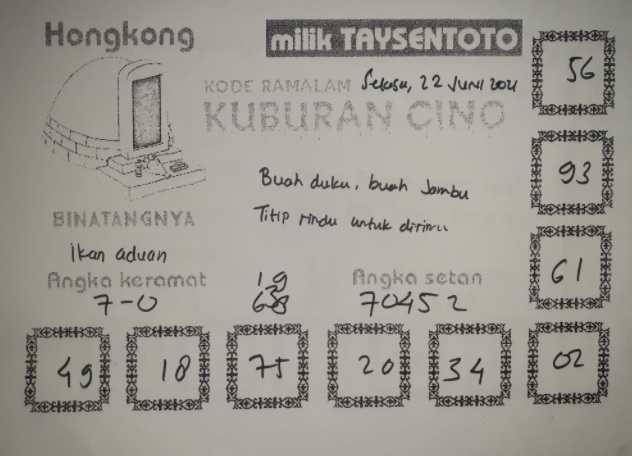 Hongkong
milik TAYSENTOTO
56
KODE RAMALAM Selasa, 22 JUNI 2021
KUBURAN CINO
93
Buah duku, buah Jambu
Titip rindu untuk dirimu
BINATANGNYA
Ikan aduan
61
Angka keramat
19
Angka setan
7-0
70452
49
18
75
20
34
02